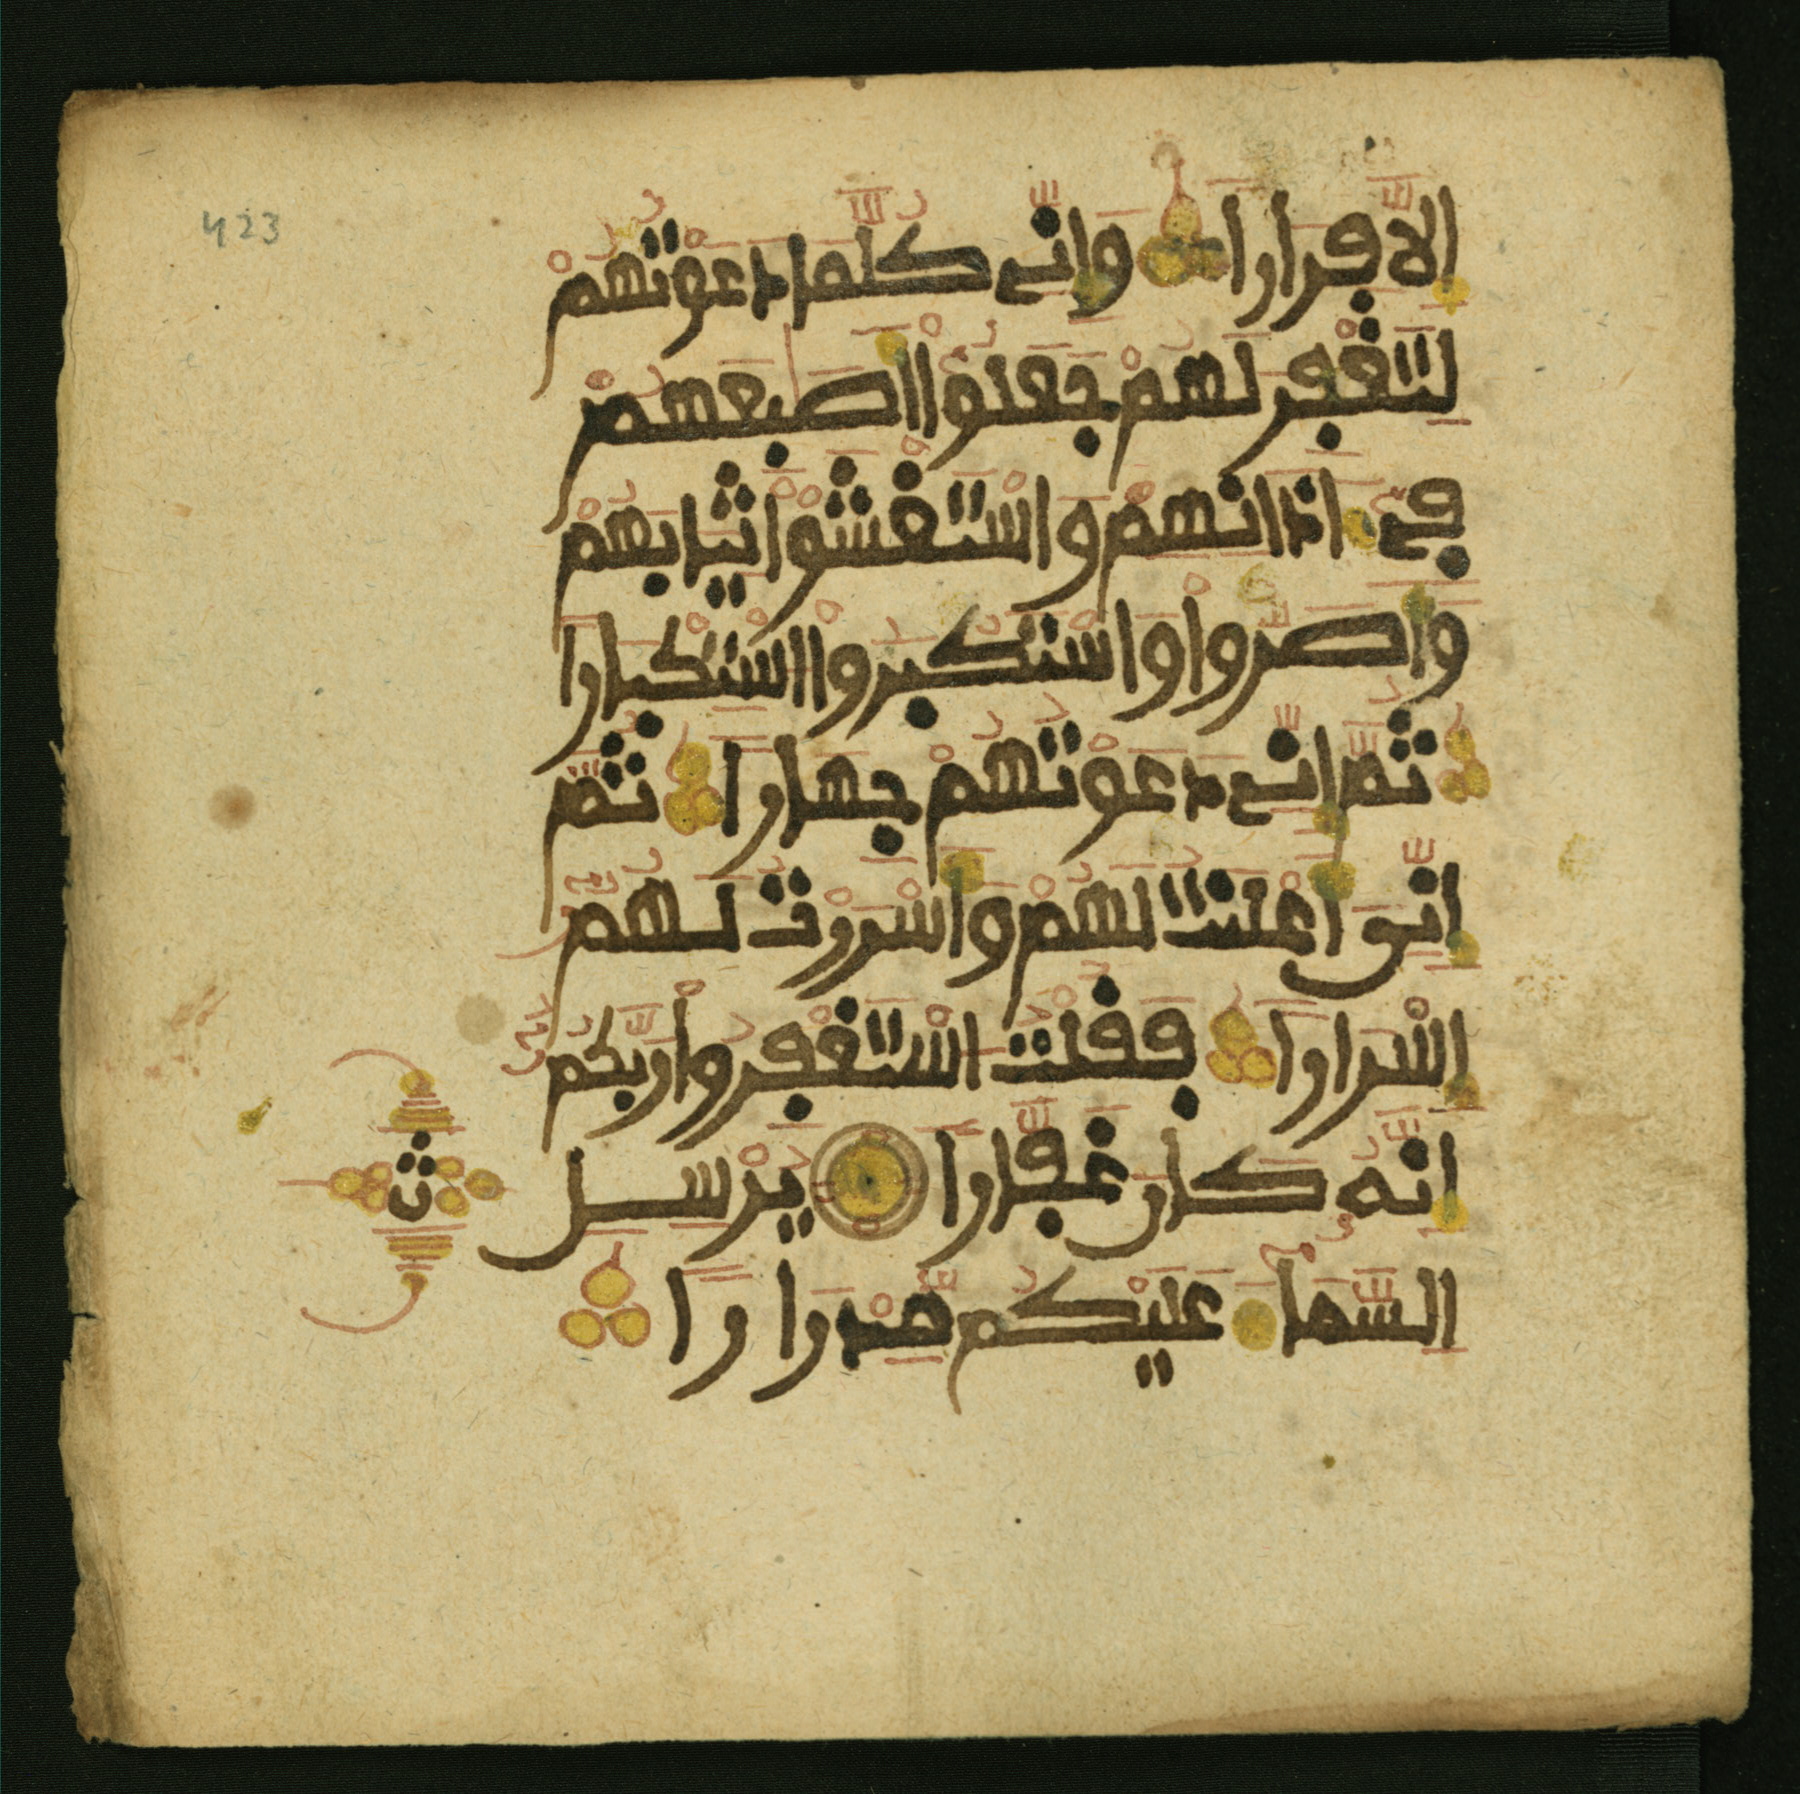 423
إلا فرارا وإنّے كلّما دعوتهم
لتغفر لهم جعلوا أصبعهم
فے ءاذانهم واستغشوا ثيابهم
وأصرّوا واستكبروا استكبارا
ثمّ إنّے دعوتهم جهارا ثمّ
إنّى أعلنت لهم وأسررت لهم
إسرارا فقلت استغفروا ربّكم
إنّه كان غفّارا يرسل
ث
السّماء عليكم مّدرارا